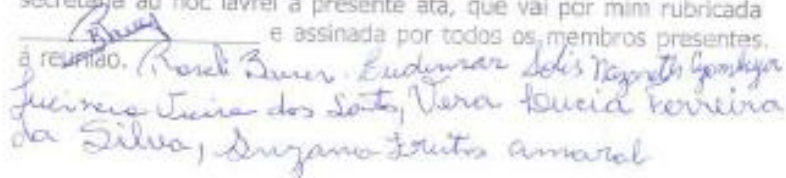 secretária ad hoc lavrei a presente ata, que vai por mim rubricada
e assinada por todos os membros presentes.
à reunião. Roseli Eudimar Solis Nazareth
Vieira dos Santos, Vera Lucia Ferreira
da Silva, Suzana Frutos Amaral